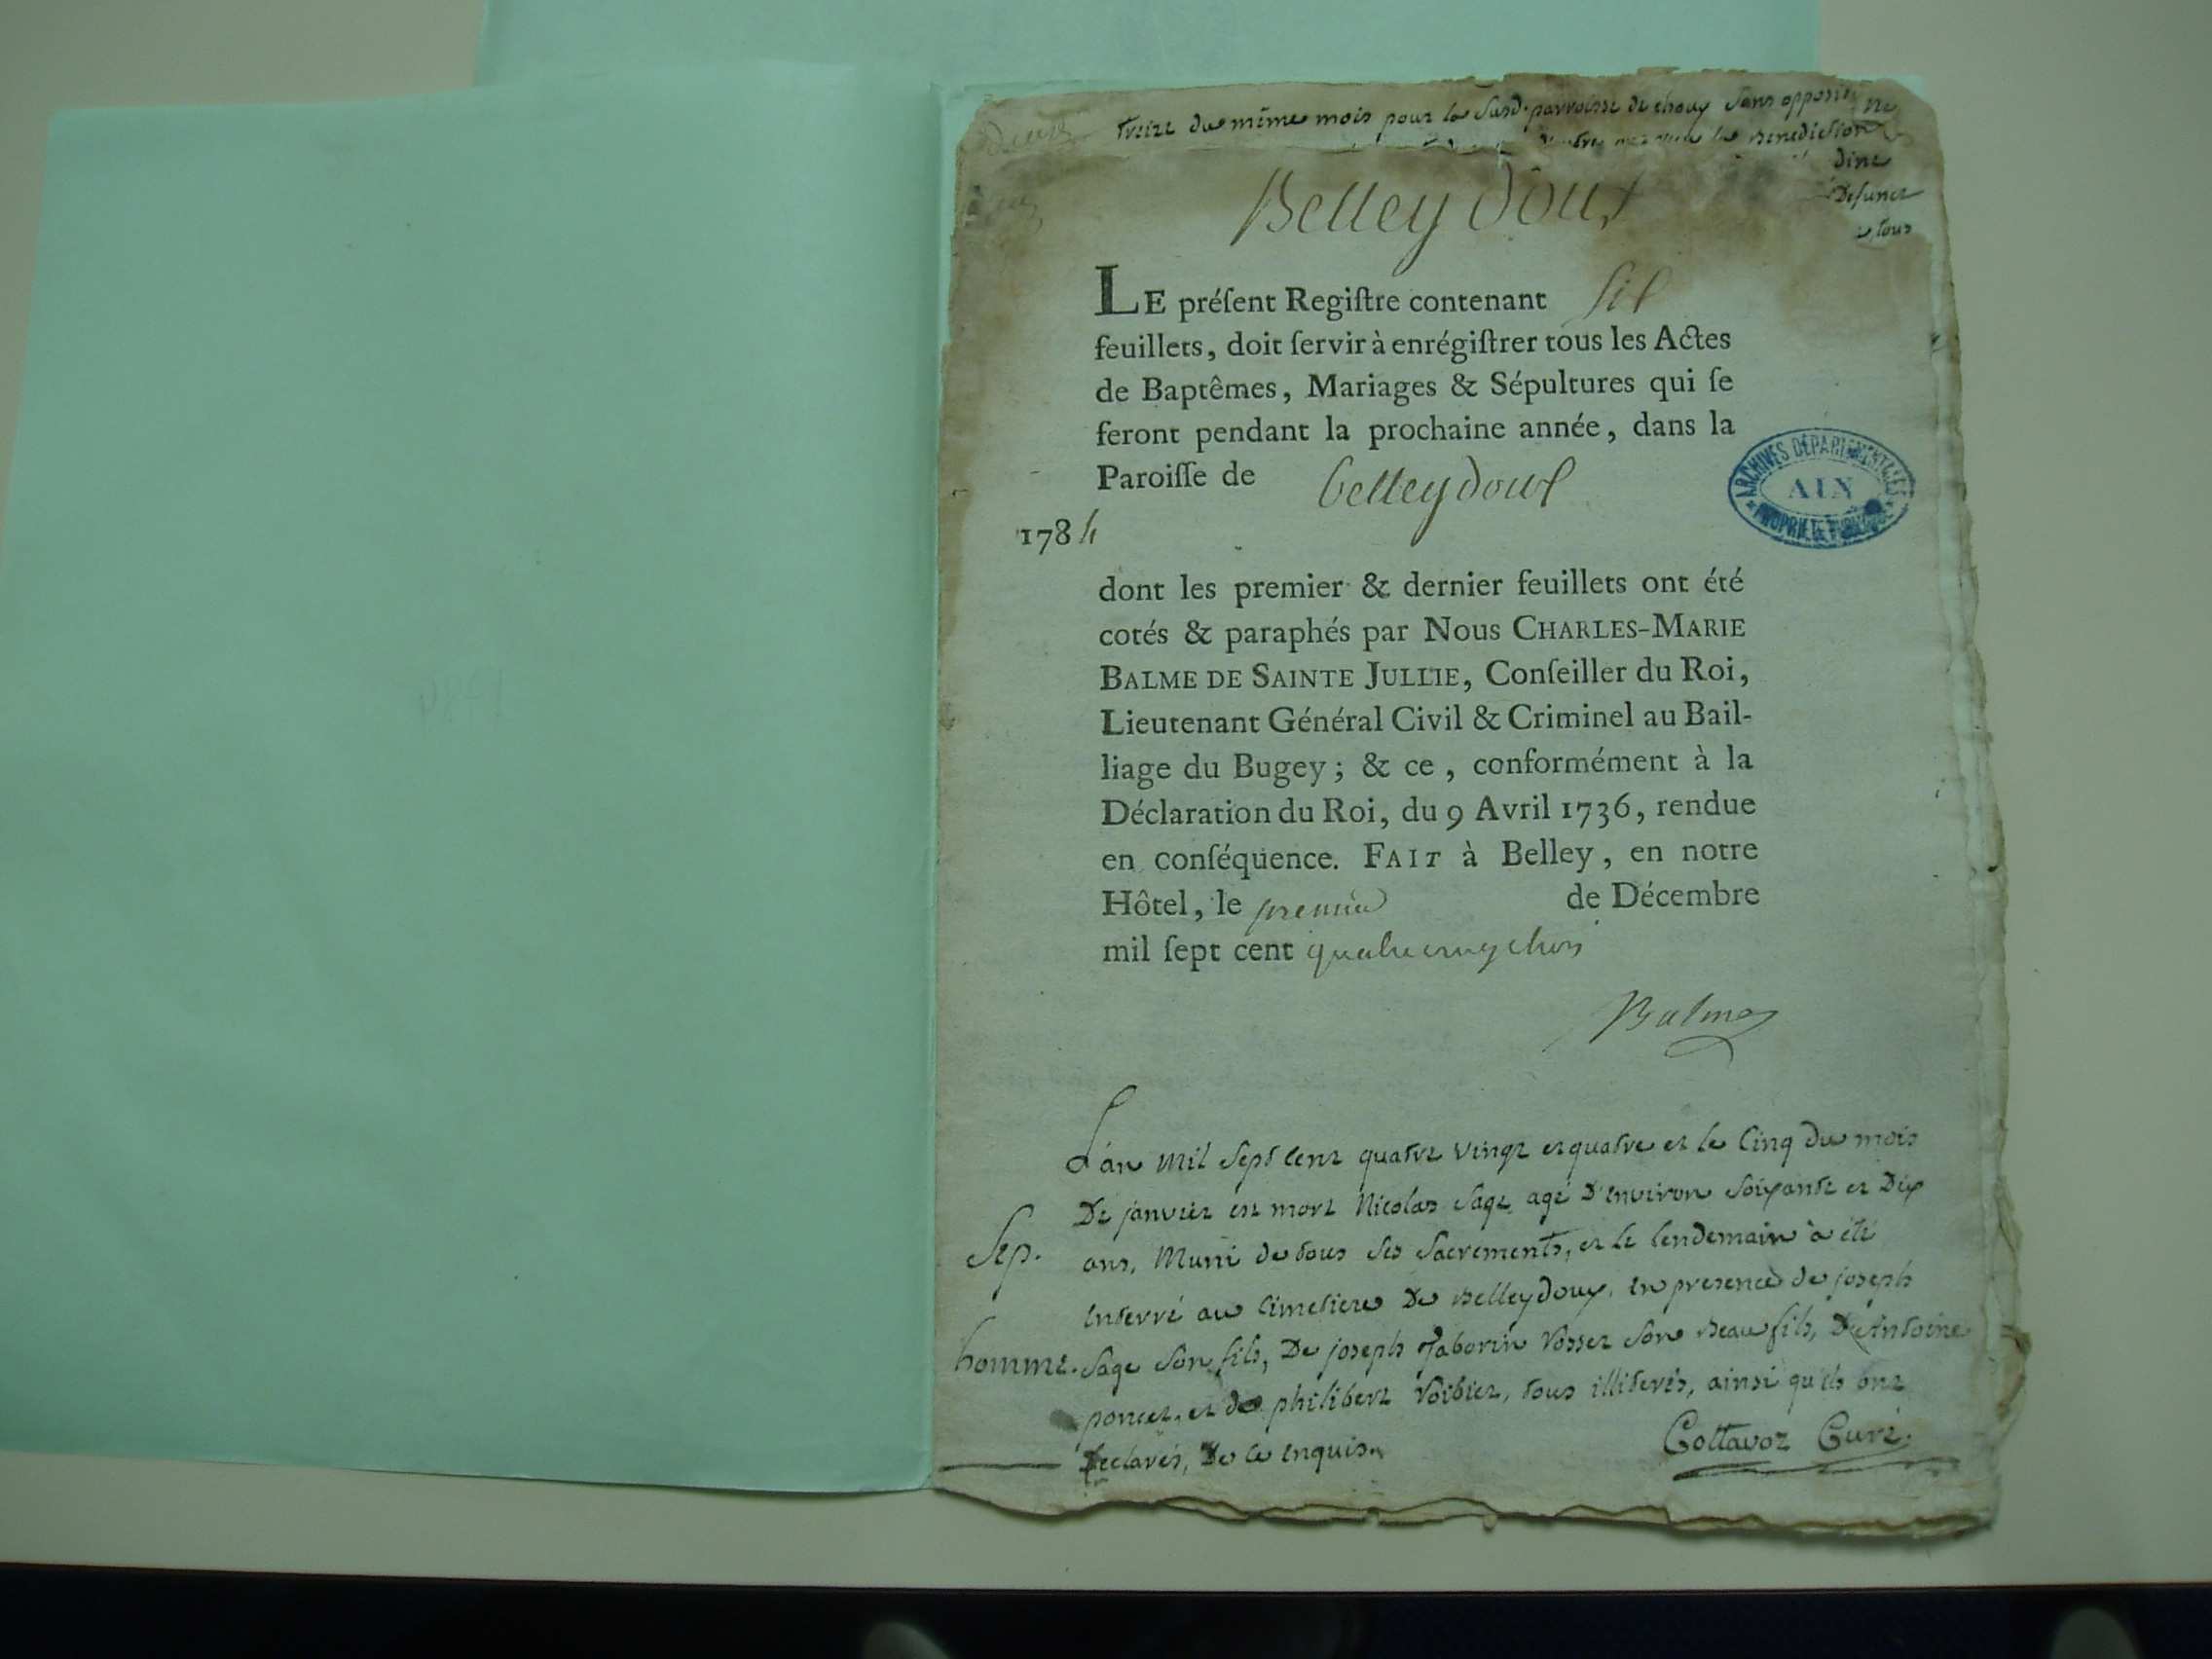 treize du même mois pour la susd. parroisse de chouy sans
la Benediction
dine
Defunct
tous
Belleydoux
LE préſent Regiſtre contenant six
feuillets, doit ſervir à enrégiſtrer tous les Actes
de Baptêmes, Mariages & Sépultures qui ſe
feront pendant la prochaine année, dans la
Paroiſſe de belleydoux
ARCHIVES DÉPARTEMENTALES
AIN
PROPRIÉTÉ PUBLIQUE
1784
dont les premier & dernier feuillets ont été
cotés & paraphés par Nous CHARLES-MARIE
BALME DE SAINTE JULLIE, Conſeiller du Roi,
Lieutenant Général Civil & Criminel au Bail-
liage du Bugey ; & ce , conformément à la
Déclaration du Roi, du 9 Avril 1736, rendue
en conſéquence. FAIT à Belley, en notre
Hôtel, le premier de Décembre
mil ſept cent quatre vingt trois
Balme
L'an mil sept cent quatre vingt et quatre et le Cinq du mois
De janvier est mort Nicolas Sage, agé D'environ soixante et Dix
Sep. ans, Muni de tous ses sacrements, et le lendemain à été
enterré au Cimetiere De Belleydoux, en presence de joseph
homme. Sage son fils, De joseph Taborin Rosset son Beau fils, D'Antoine
poncet, et de philibert Roibier, tous illiterés, ainsi qu'ils ont
Declarés, De ce enquis.
Cottavoz Curé.